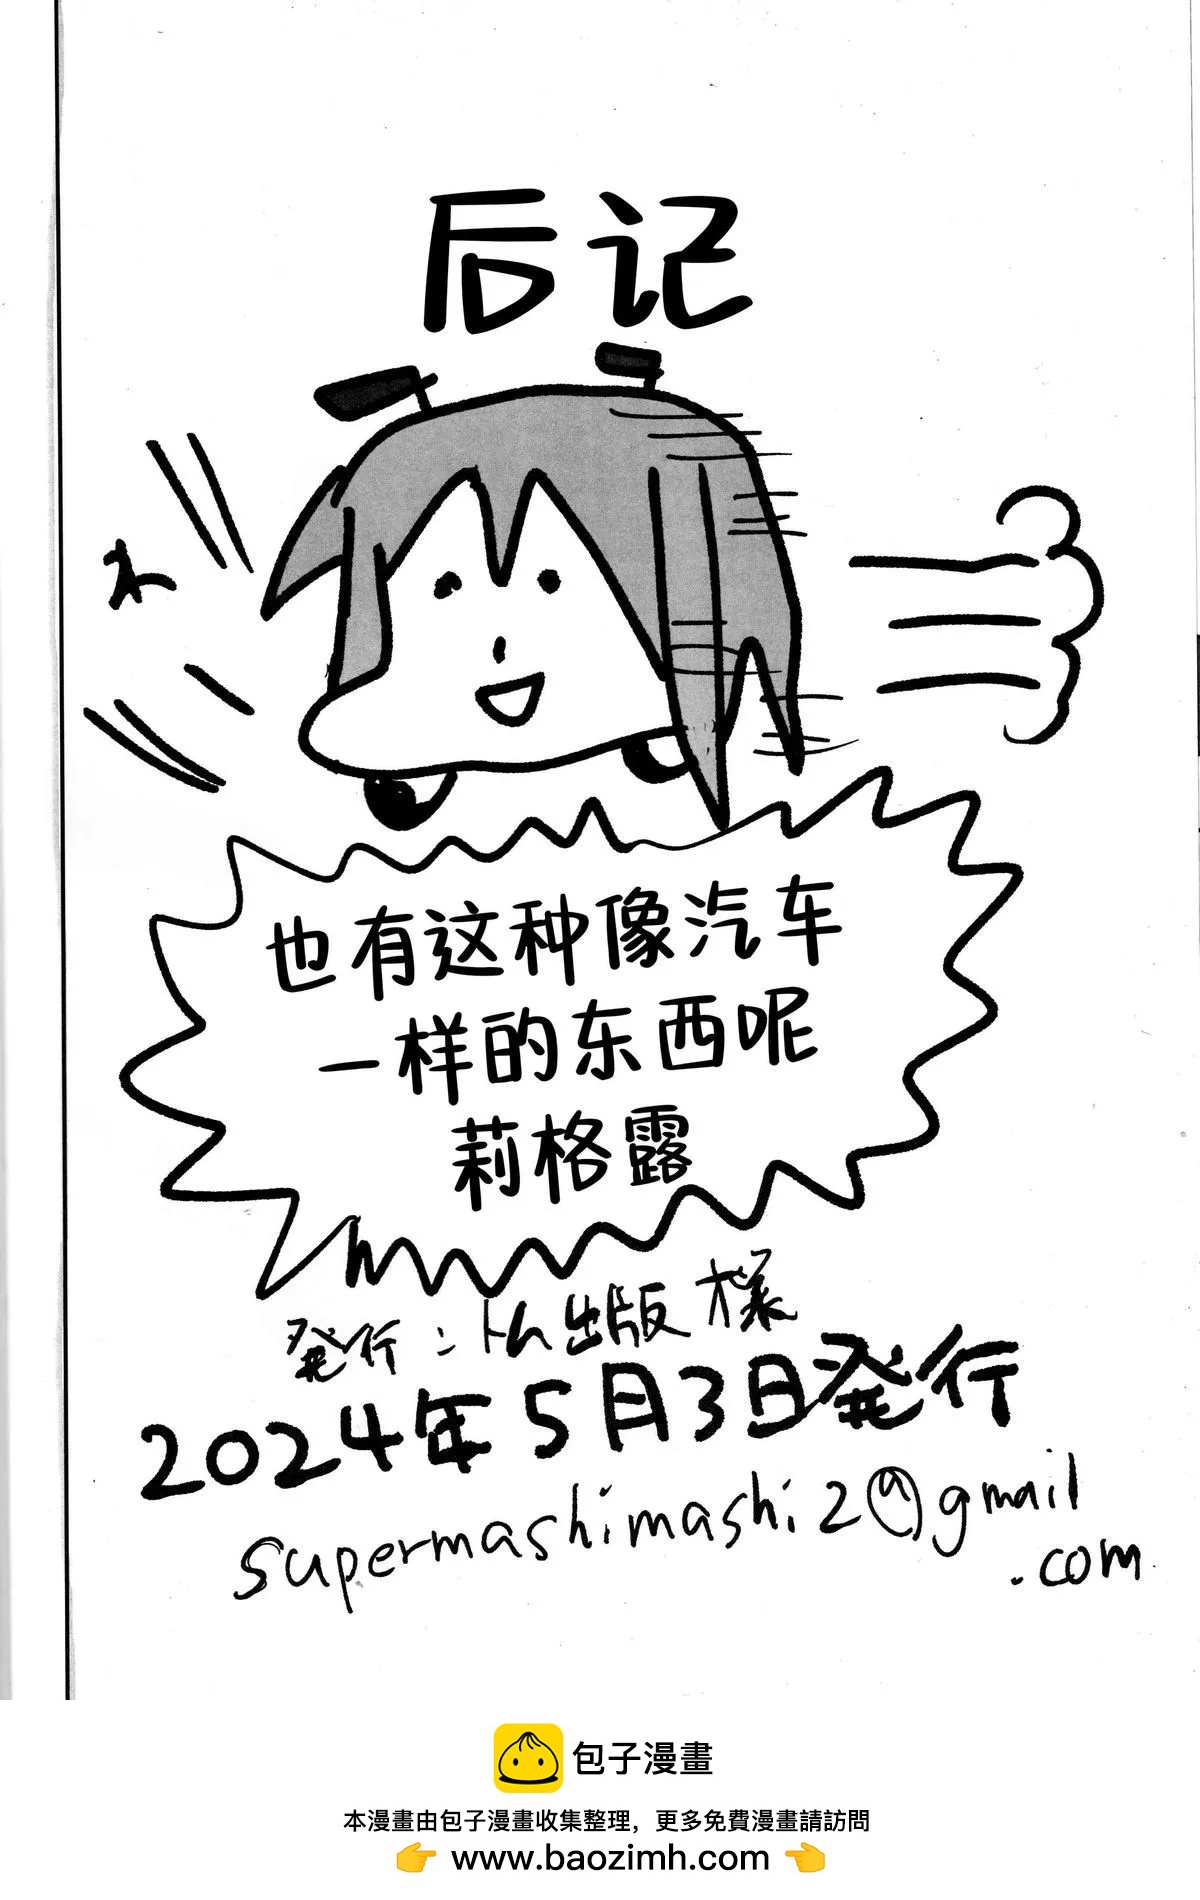 后记
ネ
也有这种像汽车
一样的东西呢
莉格露
発行：出版 様
2024年5月3日発行
supermashimashi2@gmail
.com
包子漫畫
本漫畫由包子漫畫收集整理，更多免費漫畫請訪問
👉 www.baozimh.com 👈